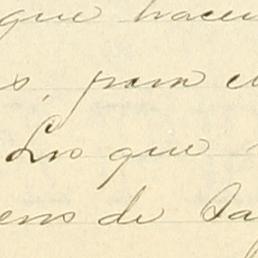 que hacer
s, para
Los que
ens de